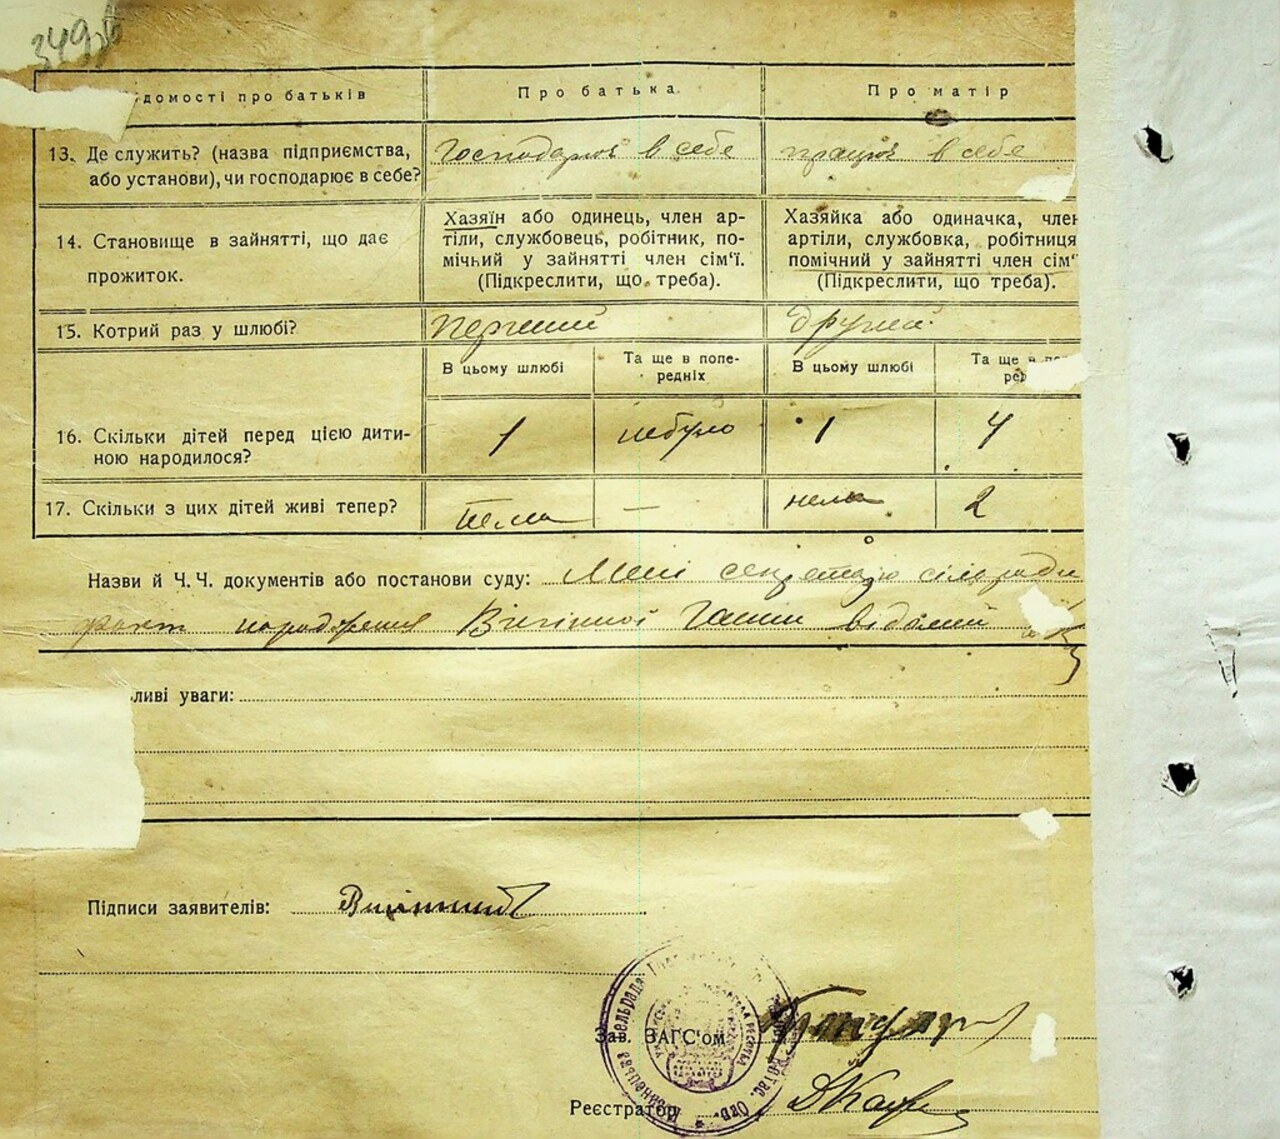 349
домості про батьків
Про батька
Про матір
13. Де служить? (назва підприємства, або установи), чи господарює в себе?
Господарює в себе
працює в себе
14. Становище в зайнятті, що дає прожиток.
Хазяїн або одинець, член ар-
тіли, службовець, робітник, по-
мічний у зайнятті член сім'ї.
(Підкреслити, що треба).
Хазяйка або одиначка, член
артіли, службовка, робітниця
помічний у зайнятті член сім'
(Підкреслити, що треба).
15. Котрий раз у шлюбі?
Перший
другий
В цьому шлюбі
Та ще в попе-
редніх
В цьому шлюбі
Та ще в
16. Скільки дітей перед цією дити-
ною народилося?
1
небуло
1
4
17. Скільки з цих дітей живі тепер?
нема
—
нема
2
Назви й Ч. Ч. документів або постанови суду: Мені секретарю сільради
факт народження Ганни відомий
ливі уваги:
Підписи заявителів:
Зав. ЗАГС'ом
Реєстратор